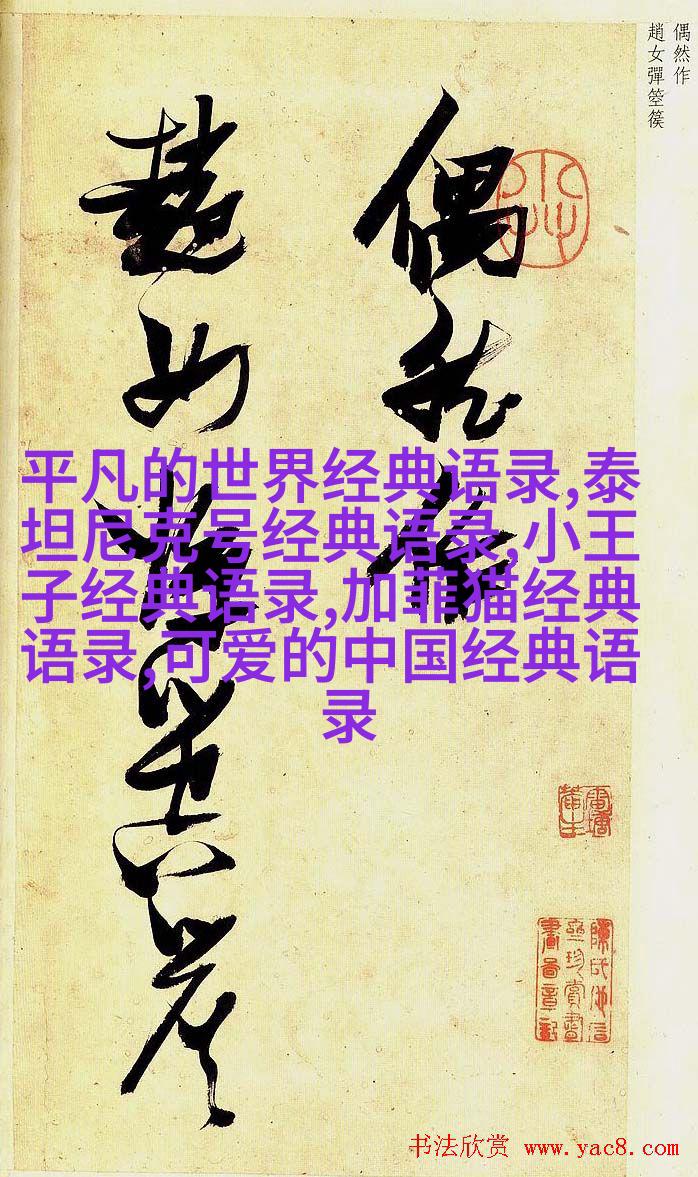 偶然作
趙女彈箜篌
偶然作
趙女彈箜篌
平凡的世界经典语录,泰
坦尼克号经典语录,小王
子经典语录,加菲猫经典
语录,可爱的中国经典语
录
书法欣赏 www.yac8.com